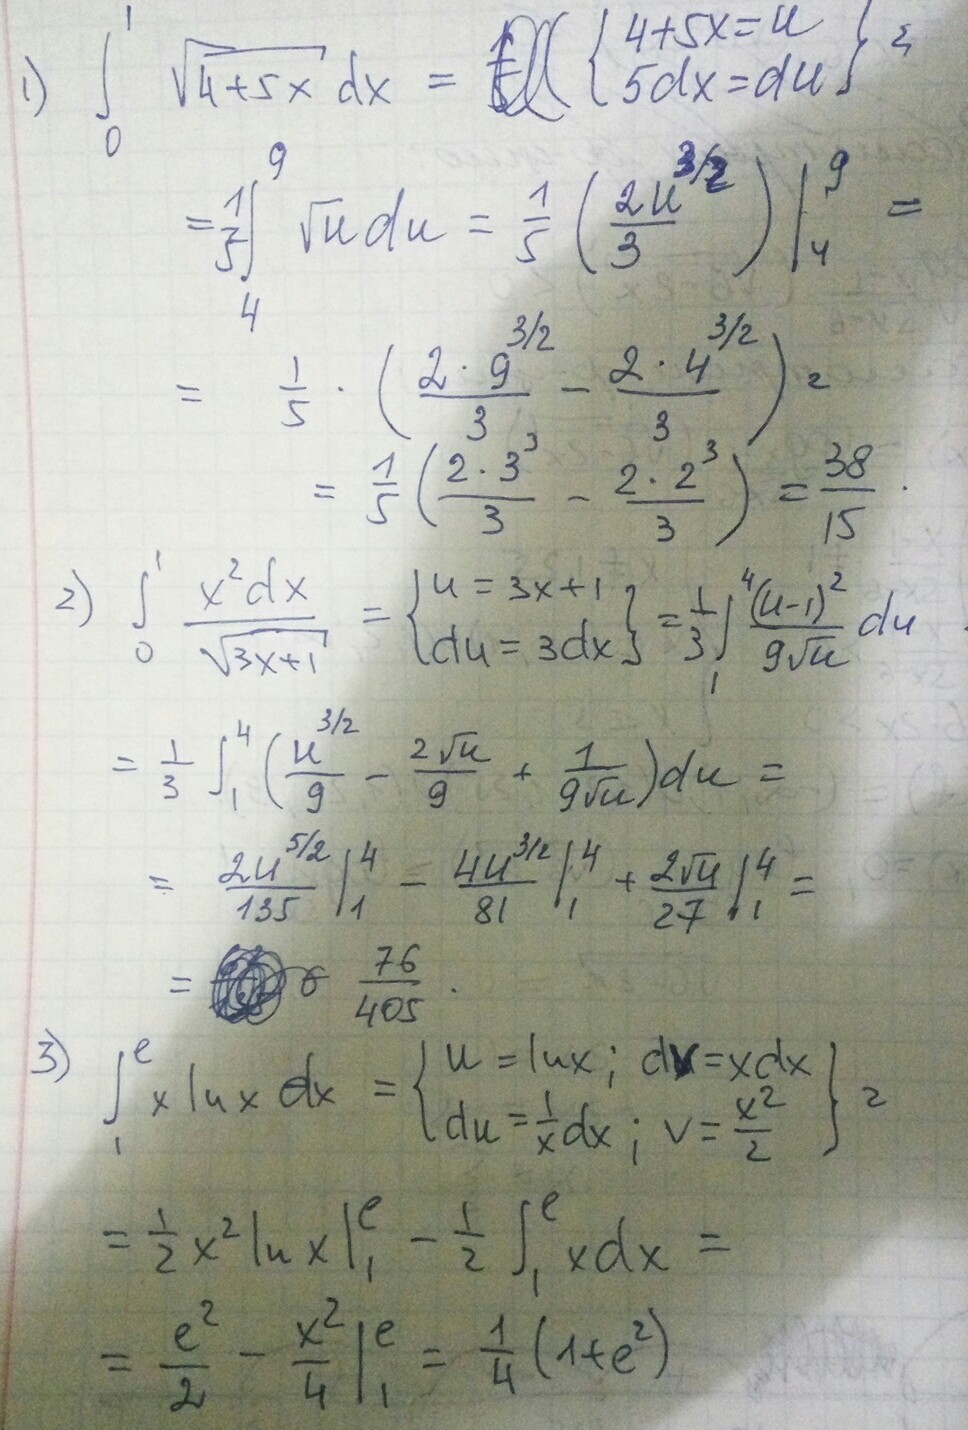 1) ∫₀¹ √(4+5x) dx = { 4+5x=u
5dx=du } =
= 1/5 ∫₄⁹ √u du = 1/5 (2u^(3/2)/3) |₄⁹ =
= 1/5 · (2·9^(3/2)/3 − 2·4^(3/2)/3) =
= 1/5 (2·3³/3 − 2·2³/3) = 38/15 .
2) ∫₀¹ x²dx/√(3x+1) = { u = 3x+1
du = 3dx } = 1/3 ∫₁⁴ (u-1)²/(9√u) du
= 1/3 ∫₁⁴ (u^(3/2)/9 − 2√u/9 + 1/(9√u)) du =
= 2u^(5/2)/135 |₁⁴ − 4u^(3/2)/81 |₁⁴ + 2√u/27 |₁⁴ =
= 76/405 .
3) ∫₁ᵉ x ln x dx = { u = ln x ; dv = xdx
du = 1/x dx ; v = x²/2 } =
= 1/2 x² ln x |₁ᵉ − 1/2 ∫₁ᵉ xdx =
= e²/2 − x²/4 |₁ᵉ = 1/4 (1+e²)